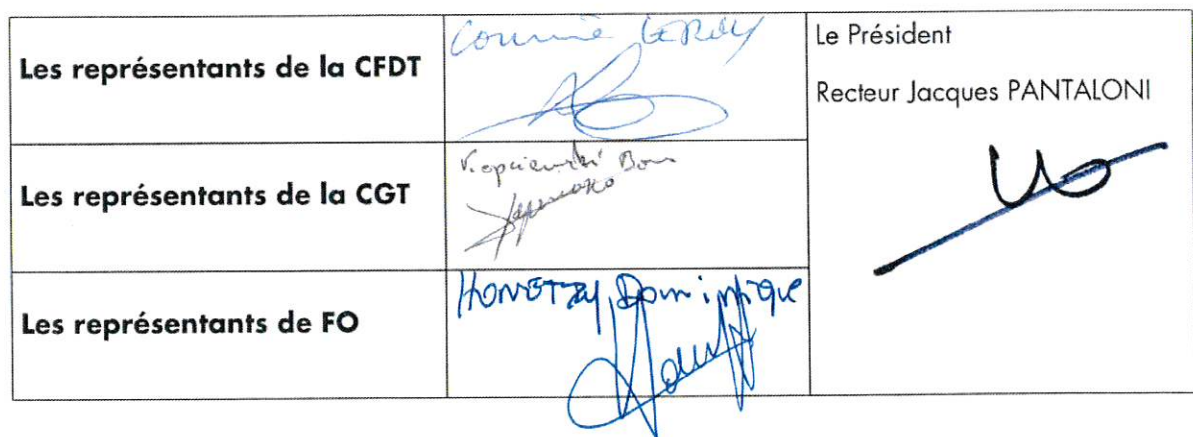 Les représentants de la CFDT
Corinne LEROY
Le Président
Recteur Jacques PANTALONI
Les représentants de la CGT
Les représentants de FO
Dominique